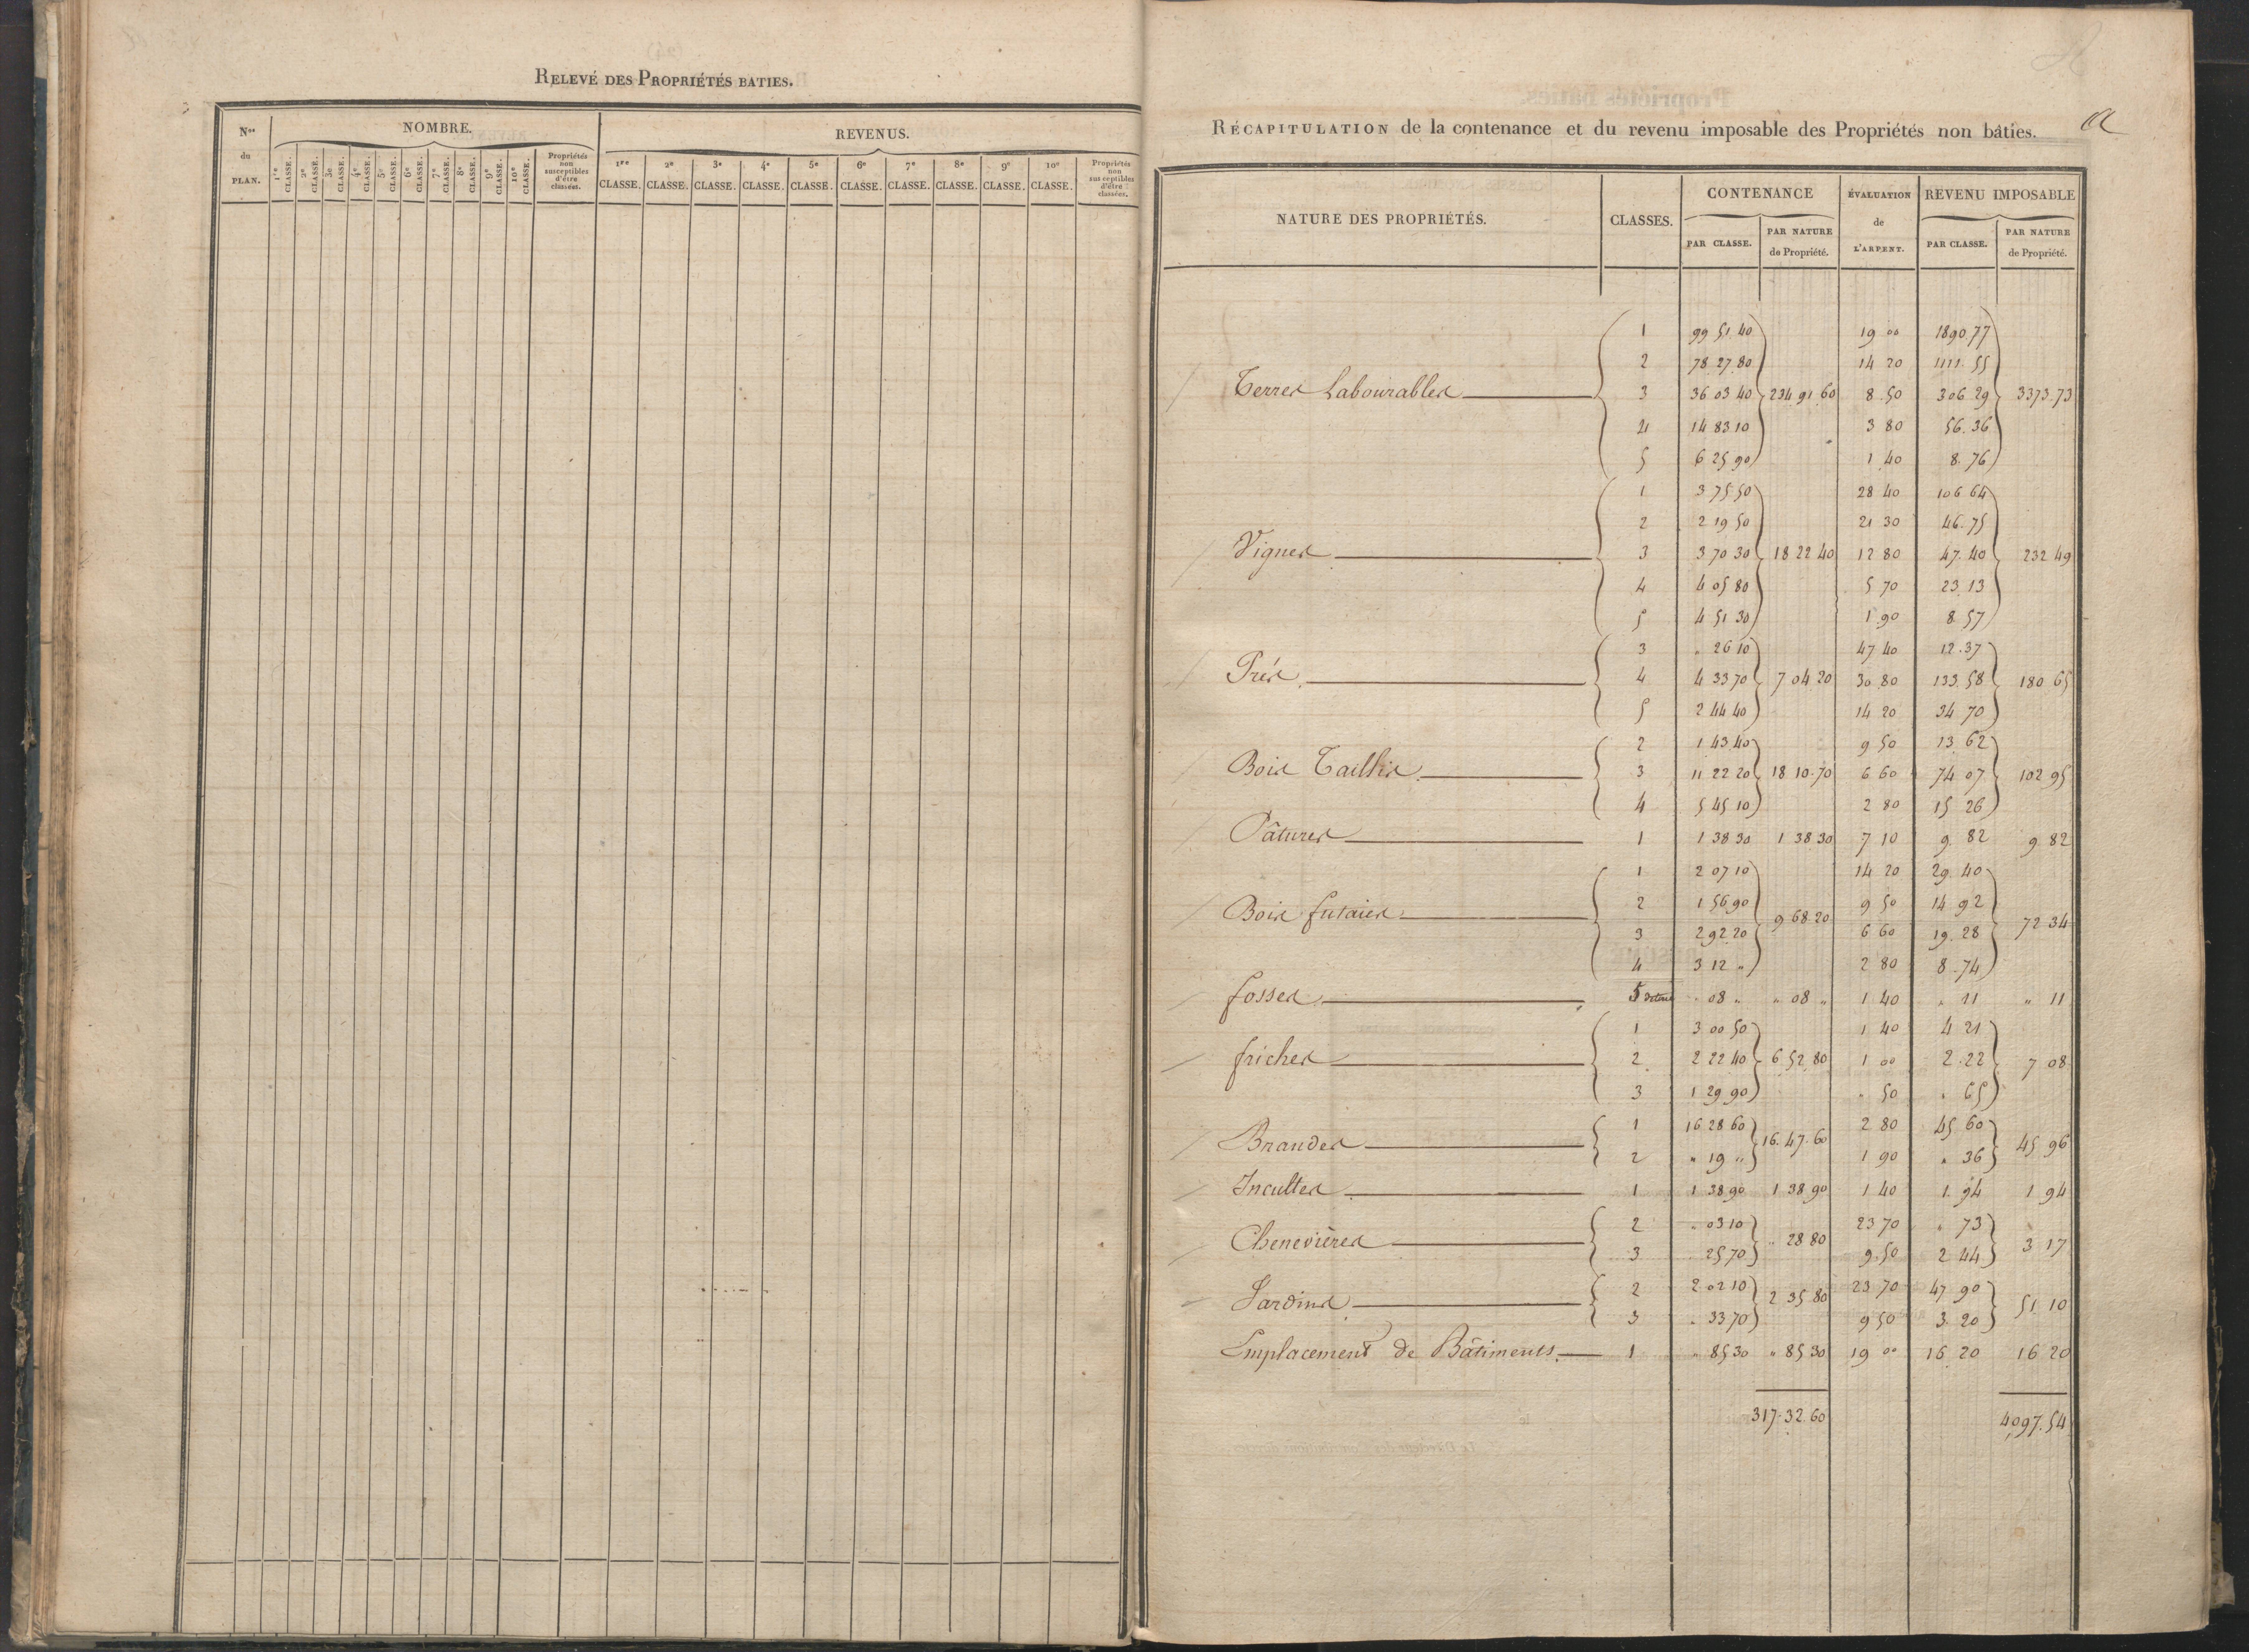 RELEVÉ DES PROPRIÉTÉS BATIES.
Nos du PLAN. NOMBRE. REVENUS.
1re CLASSE. 2e CLASSE. 3e CLASSE. 4e CLASSE. 5e CLASSE. 6e CLASSE. 7e CLASSE. 8e CLASSE. 9e CLASSE. 10e CLASSE. Propriétés non susceptibles d'être classées.
1re CLASSE. 2e CLASSE. 3e CLASSE. 4e CLASSE. 5e CLASSE. 6e CLASSE. 7e CLASSE. 8e CLASSE. 9e CLASSE. 10e CLASSE. Propriétés non susceptibles d'être classées.
RÉCAPITULATION de la contenance et du revenu imposable des Propriétés non bâties.
NATURE DES PROPRIÉTÉS. CLASSES. CONTENANCE ÉVALUATION de L'ARPENT. REVENU IMPOSABLE
PAR CLASSE. PAR NATURE de Propriété. PAR CLASSE. PAR NATURE de Propriété.
1 99 51 40 19 00 1890 77
2 78 27 80 14 20 1111 55
Terres Labourables 3 36 03 40 234 91 60 8 50 306 29 3373 73
4 14 83 10 3 80 56 36
5 6 25 90 1 40 8 76
1 3 75 50 28 40 106 64
2 2 19 50 21 30 46 75
Vignes 3 3 70 30 18 22 40 12 80 47 40 232 49
4 4 05 80 5 70 23 13
5 4 51 30 1 90 8 57
3 " 26 10 47 40 12 37
Prés 4 4 33 70 7 04 20 30 80 133 58 180 65
5 2 44 40 14 20 34 70
2 1 43 40 9 50 13 62
Bois Taillis 3 11 22 20 18 10 70 6 60 74 07 102 95
4 5 45 10 2 80 15 26
Pâtures 1 1 38 30 1 38 30 7 10 9 82 9 82
1 2 07 10 14 20 29 40
Bois futaies 2 1 56 90 9 68 20 9 50 14 92 72 34
3 2 92 20 6 60 19 28
4 3 12 " 2 80 8 74
fosses 5 " 08 " " 08 " 1 40 " 11 " 11
1 3 00 50 1 40 4 21
friches 2 2 22 40 6 52 80 1 00 2 22 7 08
3 1 29 90 " 50 " 65
Brandes 1 16 28 60 16 47 60 2 80 45 60 45 96
2 " 19 " 1 90 " 36
Incultes 1 1 38 90 1 38 90 1 40 1 94 1 94
Chenevières 2 " 03 10 " 28 80 23 70 " 73 3 17
3 " 25 70 9 50 2 44
Jardins 2 2 02 10 2 35 80 23 70 47 90 51 10
3 " 33 70 9 50 3 20
Emplacement de Bâtiments 1 " 85 30 " 85 30 19 00 16 20 16 20
317 32 60 4097 54